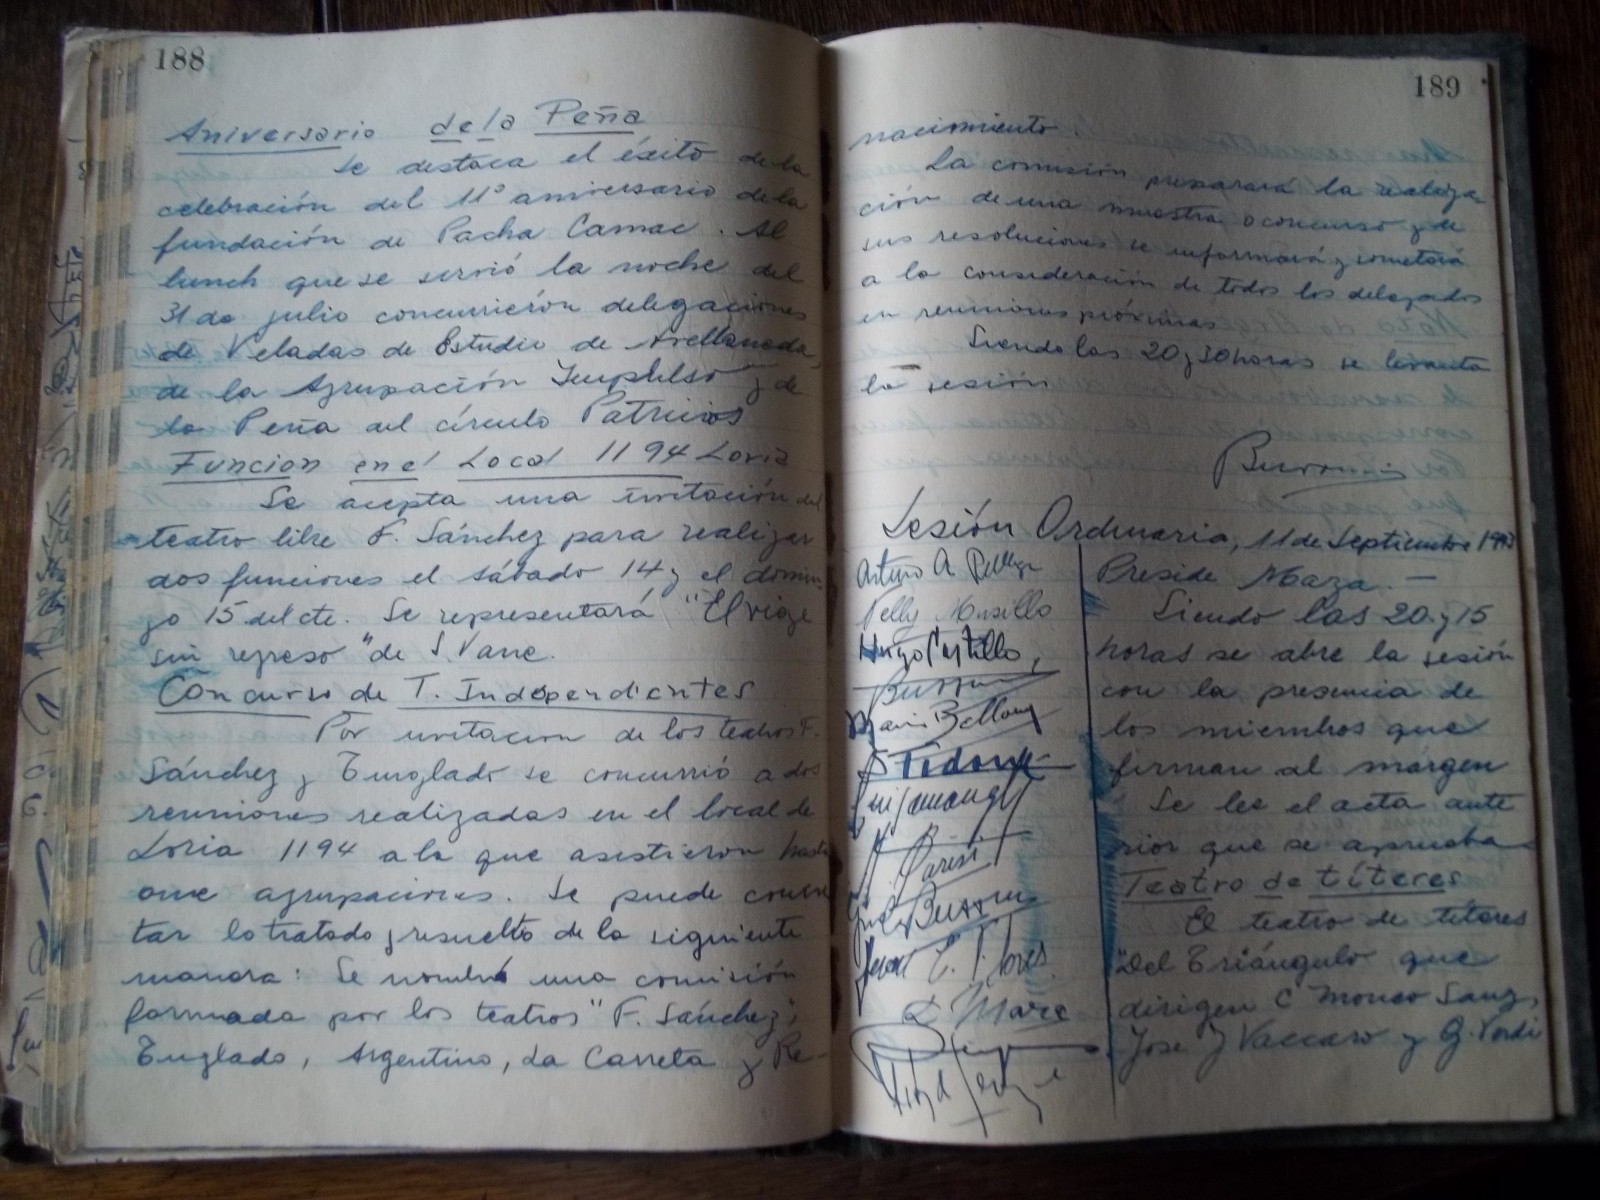 188
Aniversario de la Peña
Se destaca el éxito de la
celebración del 11° aniversario de la
fundación de Pacha Camac. Al
lunch que se sirvió la noche del
31 de julio concurrieron delegaciones
de Veladas de Estudio de Avellaneda,
de la Agrupación Impulso y de
la Peña del círculo Patricios
Funcion en el Local 1194 Loria
Se acepta una invitación del
teatro libre F. Sánchez para realizar
dos funciones el sábado 14 y el domin-
go 15 del cte. Se representará "El viaje
sin regreso" de S. Vane.
Concurso de T. Independientes
Por invitacion de los teatros F.
Sánchez y Tinglado se concurrió a dos
reuniones realizadas en el local de
Loria 1194 a la que asistieron hasta
once agrupaciones. Se puede concre
tar lo tratado y resuelto de la siguiente
manera: Se nombró una comisión
formada por los teatros "F. Sánchez",
Tinglado, Argentino, La Carreta y Re-
189
nacimiento.
La comisión preparará la realiza-
ción de una muestra o concurso y de
sus resoluciones se informará y someterá
a la consideración de todos los delegados
en reuniones próximas
Siendo las 20 y 30 horas se levanta
la sesión
Sesión Ordinaria, 11 de Septiembre 1943
Arturo A.
Nelly Musillo
Hugo Castillo,
Parisi
Flores
Preside Maza. —
Siendo las 20 y 15
horas se abre la sesión
con la presencia de
los miembros que
firman al márgen
Se lee el acta ante
rior que se aprueba
Teatro de títeres
El teatro de títeres
"Del Triángulo que
dirigen C Moneo Sanz,
Jose J Vaccaro y G. Verdi